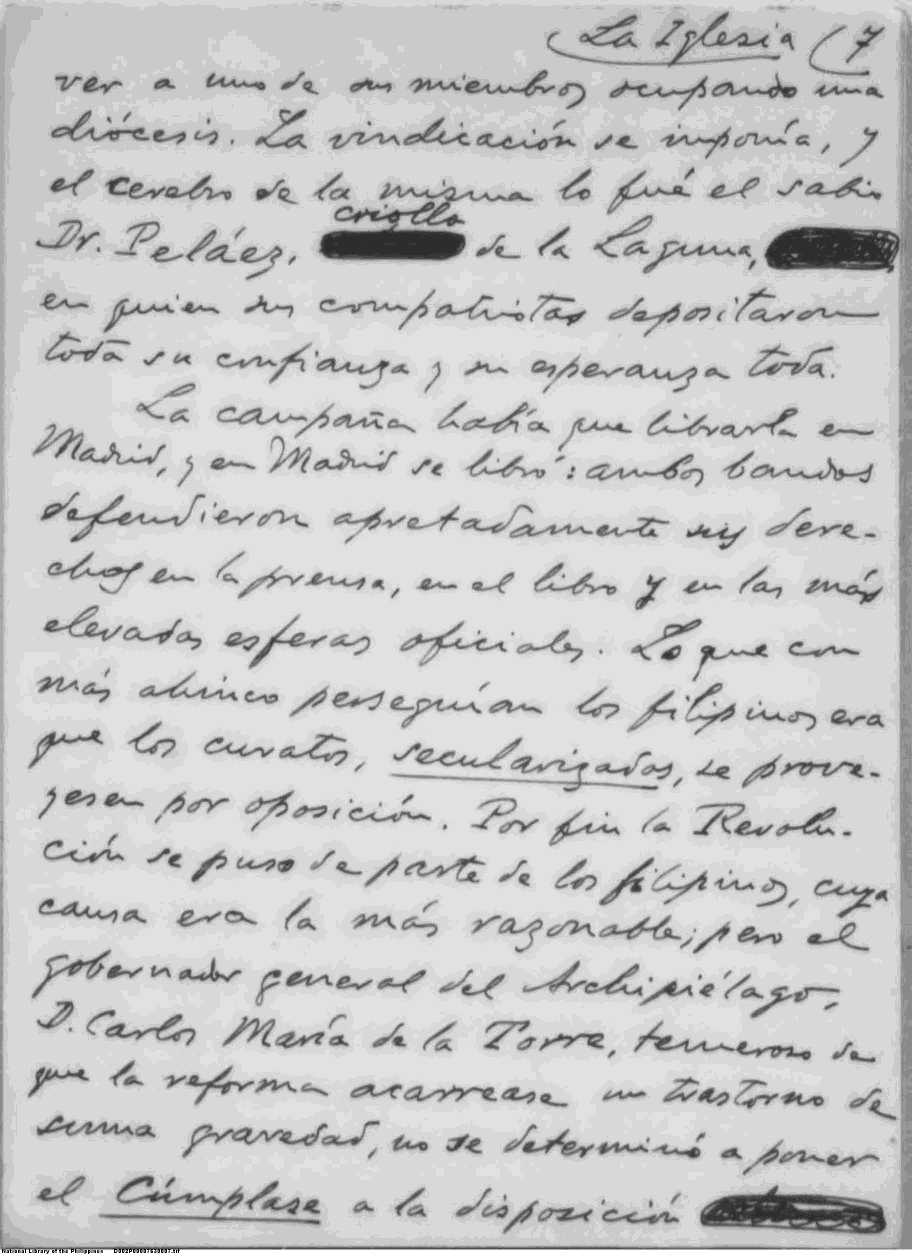 La Iglesia 7
ver a uno de sus miembros ocupando una
diócesis. La vindicación se imponía, y
el cerebro de la misma lo fué el sabio
criollo
Dr. Peláez, de la Laguna,
en quien sus compatriotas depositaron
toda su confianza y su esperanza toda.
La campaña había que librarla en
Madrid, y en Madrid se libró: ambos bandos
defendieron apretadamente sus dere-
chos en la prensa, en el libro y en las más
elevadas esferas oficiales. Lo que con
más ahinco perseguían los filipinos era
que los curatos, secularizados, se prove-
yesen por oposición. Por fin la Revolu-
ción se puso de parte de los filipinos, cuya
causa era la más razonable; pero el
gobernador general del Archipiélago,
D. Carlos María de la Torre, temeroso de
que la reforma acarrease un trastorno de
suma gravedad, no se determinó a poner
el Cúmplase a la disposición
National Library of the Philippines D002P00007630007.tif